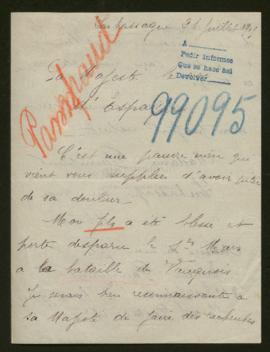 Juillet
A
Pedir informes
Que se hace así
Devolver
Sa Majesté le
d'Espagne
99095
C'est une pauvre mère qui
vient vous supplier d'avoir pitié
de sa douleur.
Mon fils a été blessé et
porté disparu le Mars
a la bataille de Vauquois
Je serais bien reconnaissante à
sa Majesté de faire des recherches